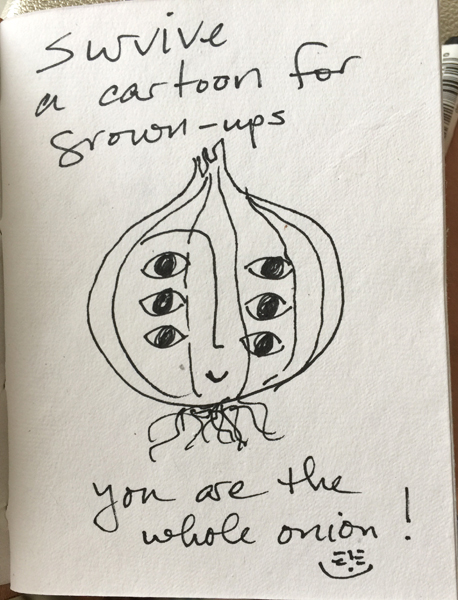 Survive
a cartoon for
grown-ups
you are the
whole onion!